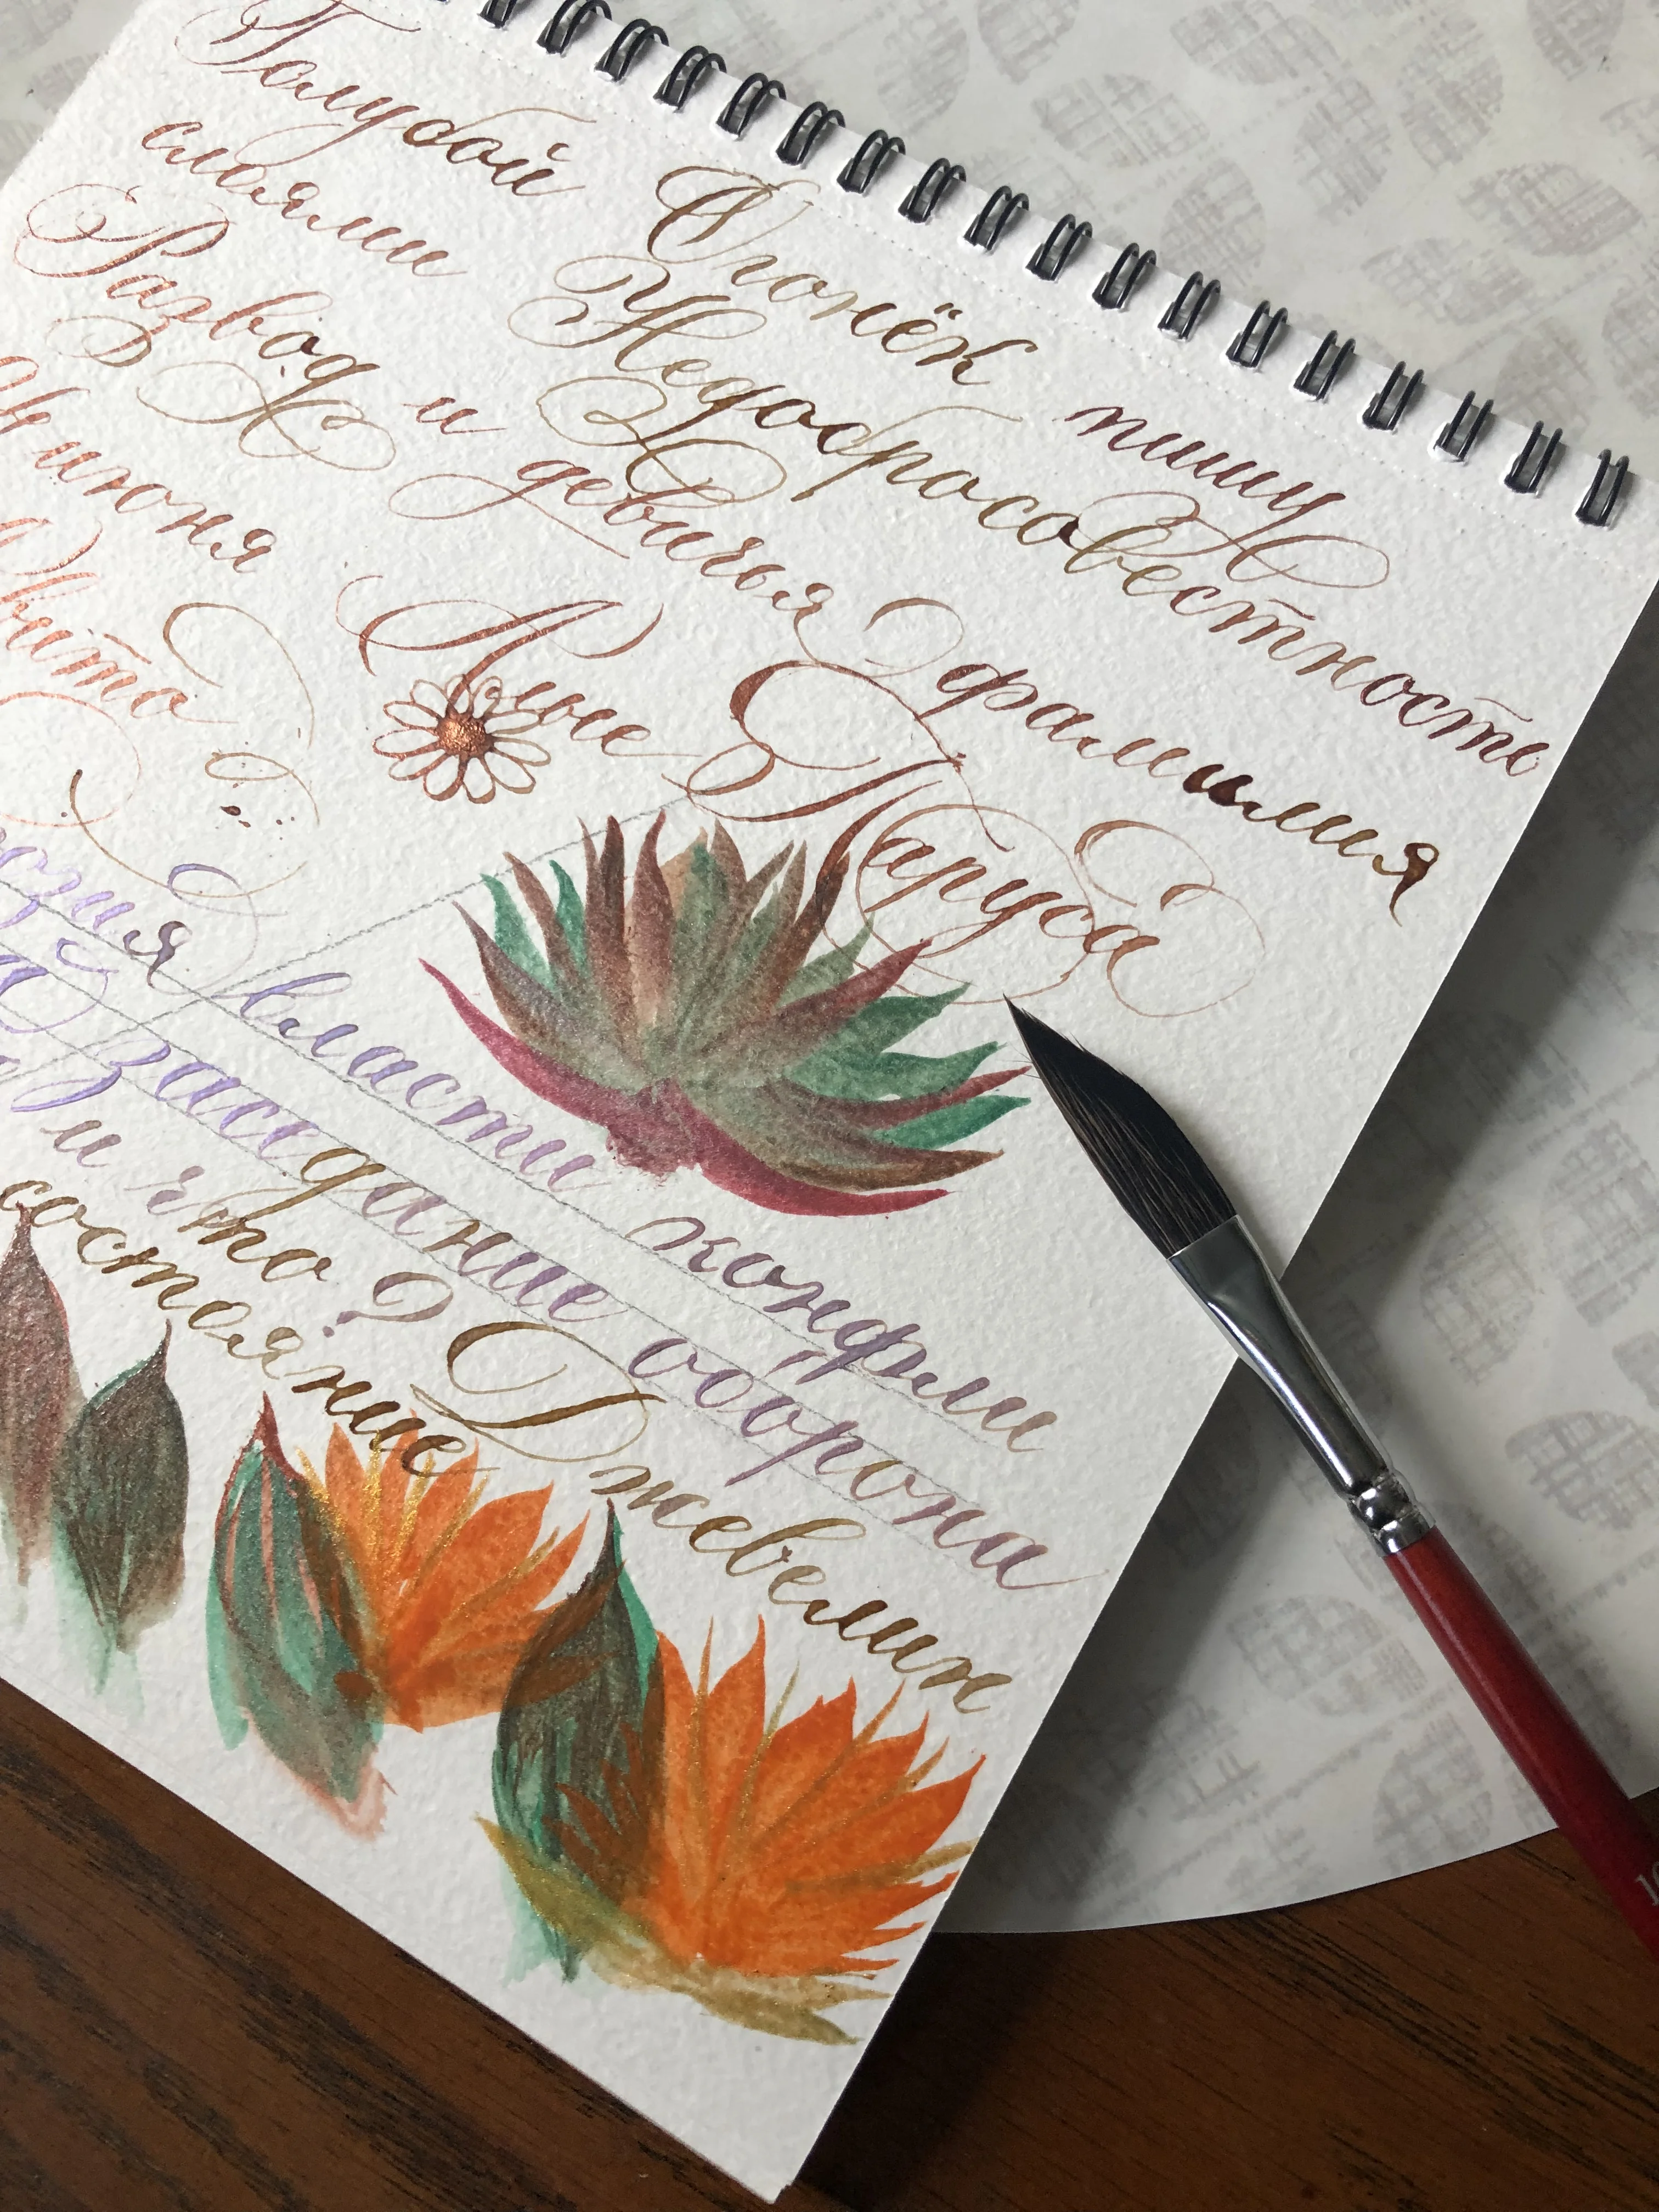 Голубой Огонёк пишу
слоями Недобросовестность
Развод и девичья фамилия
июня Алые Паруса
власти конфли
заседание оборона
и что? Джевелин
состояние